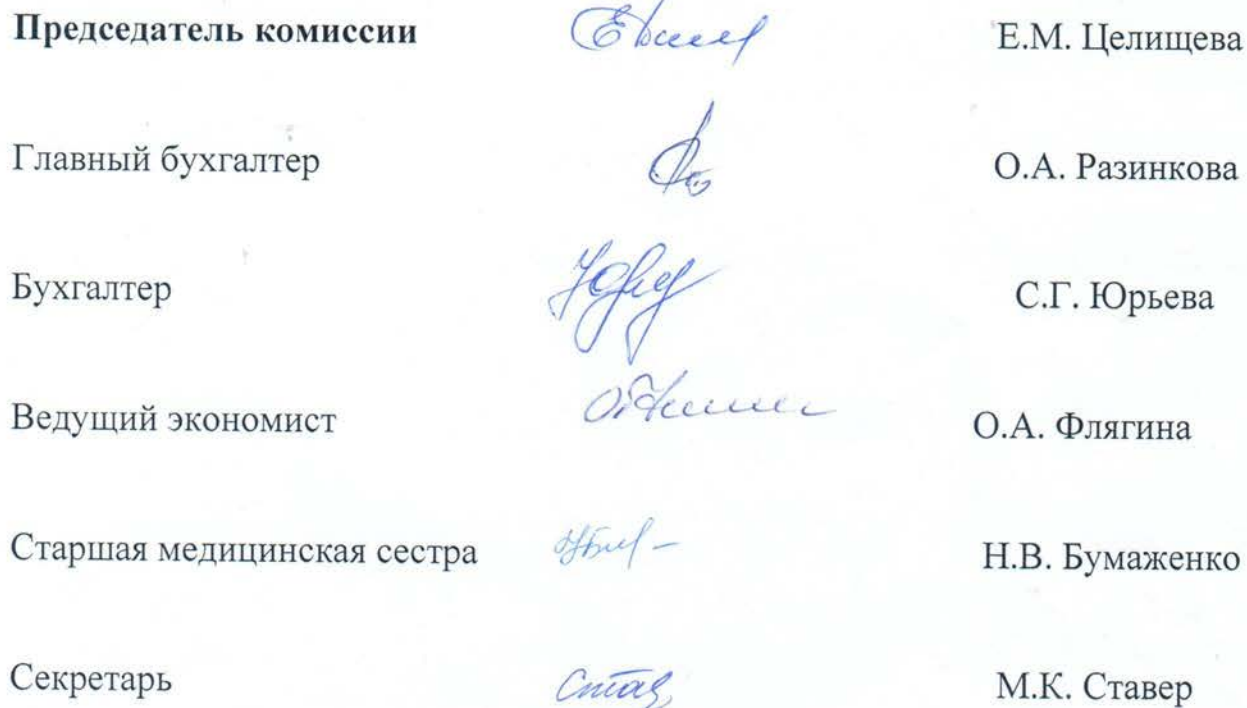 Председатель комиссии Е.М. Целищева
Главный бухгалтер О.А. Разинкова
Бухгалтер С.Г. Юрьева
Ведущий экономист О.А. Флягина
Старшая медицинская сестра Н.В. Бумаженко
Секретарь М.К. Ставер